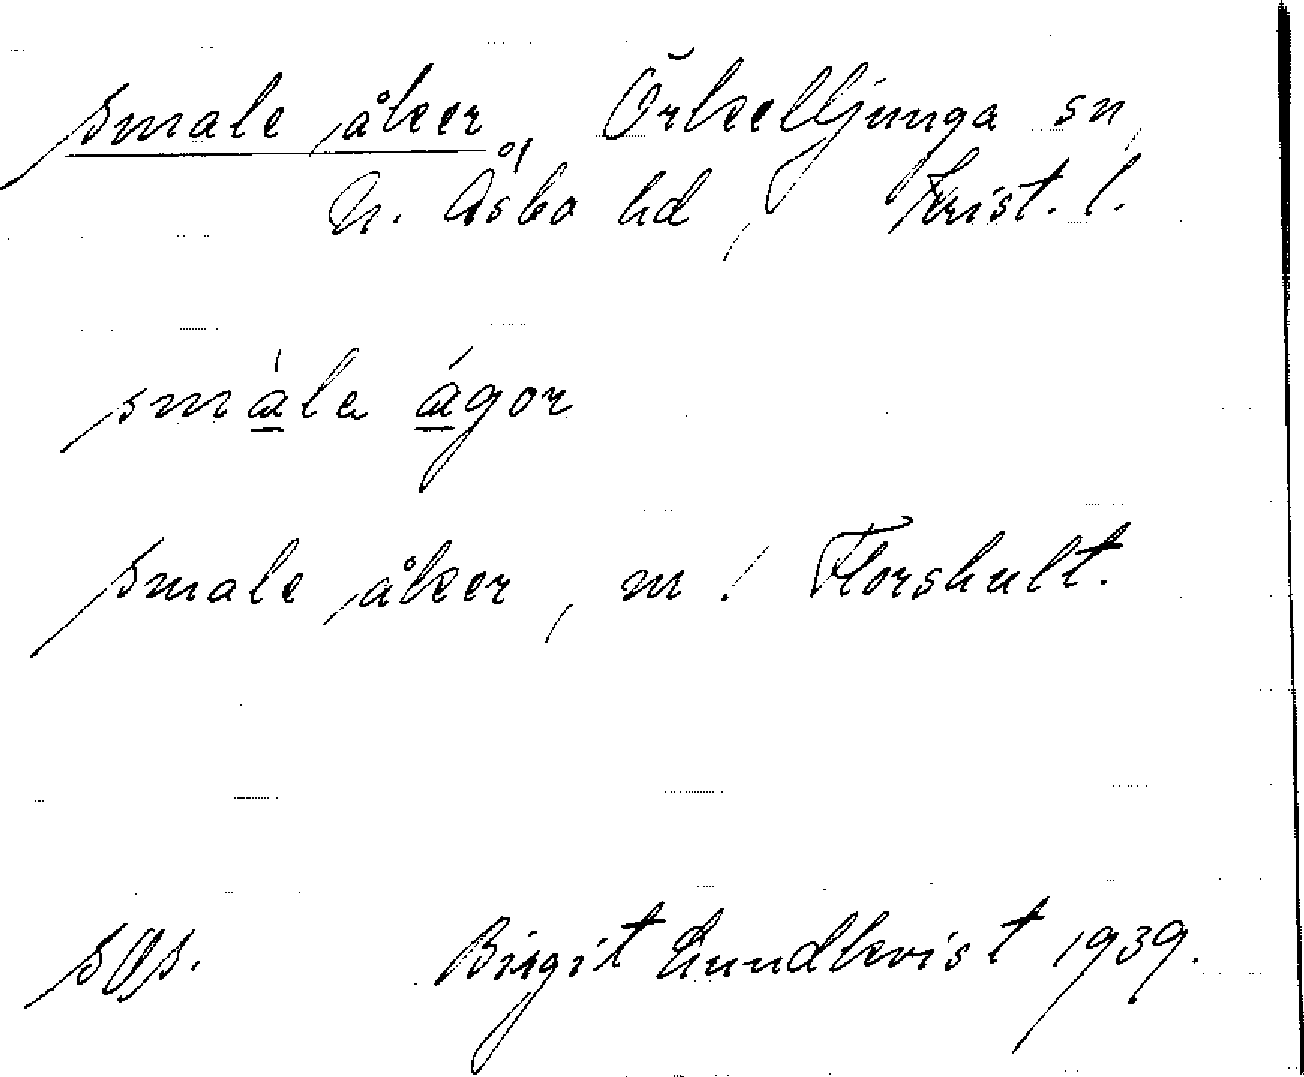 smale åker, Örkelljunga sn,
N. Åsbo hd, Krist. l.
smála ágor
smale åker, m! Florshult.
sgs. Birgit Lundkvist 1939.